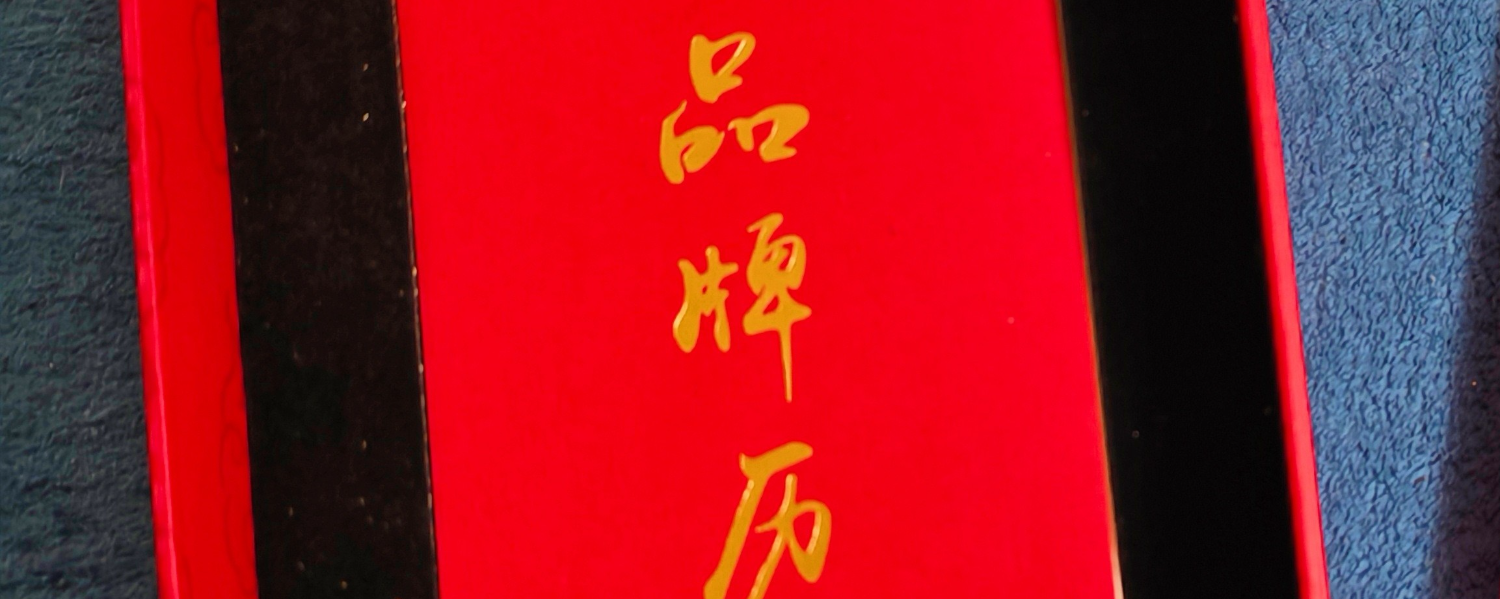 品牌历